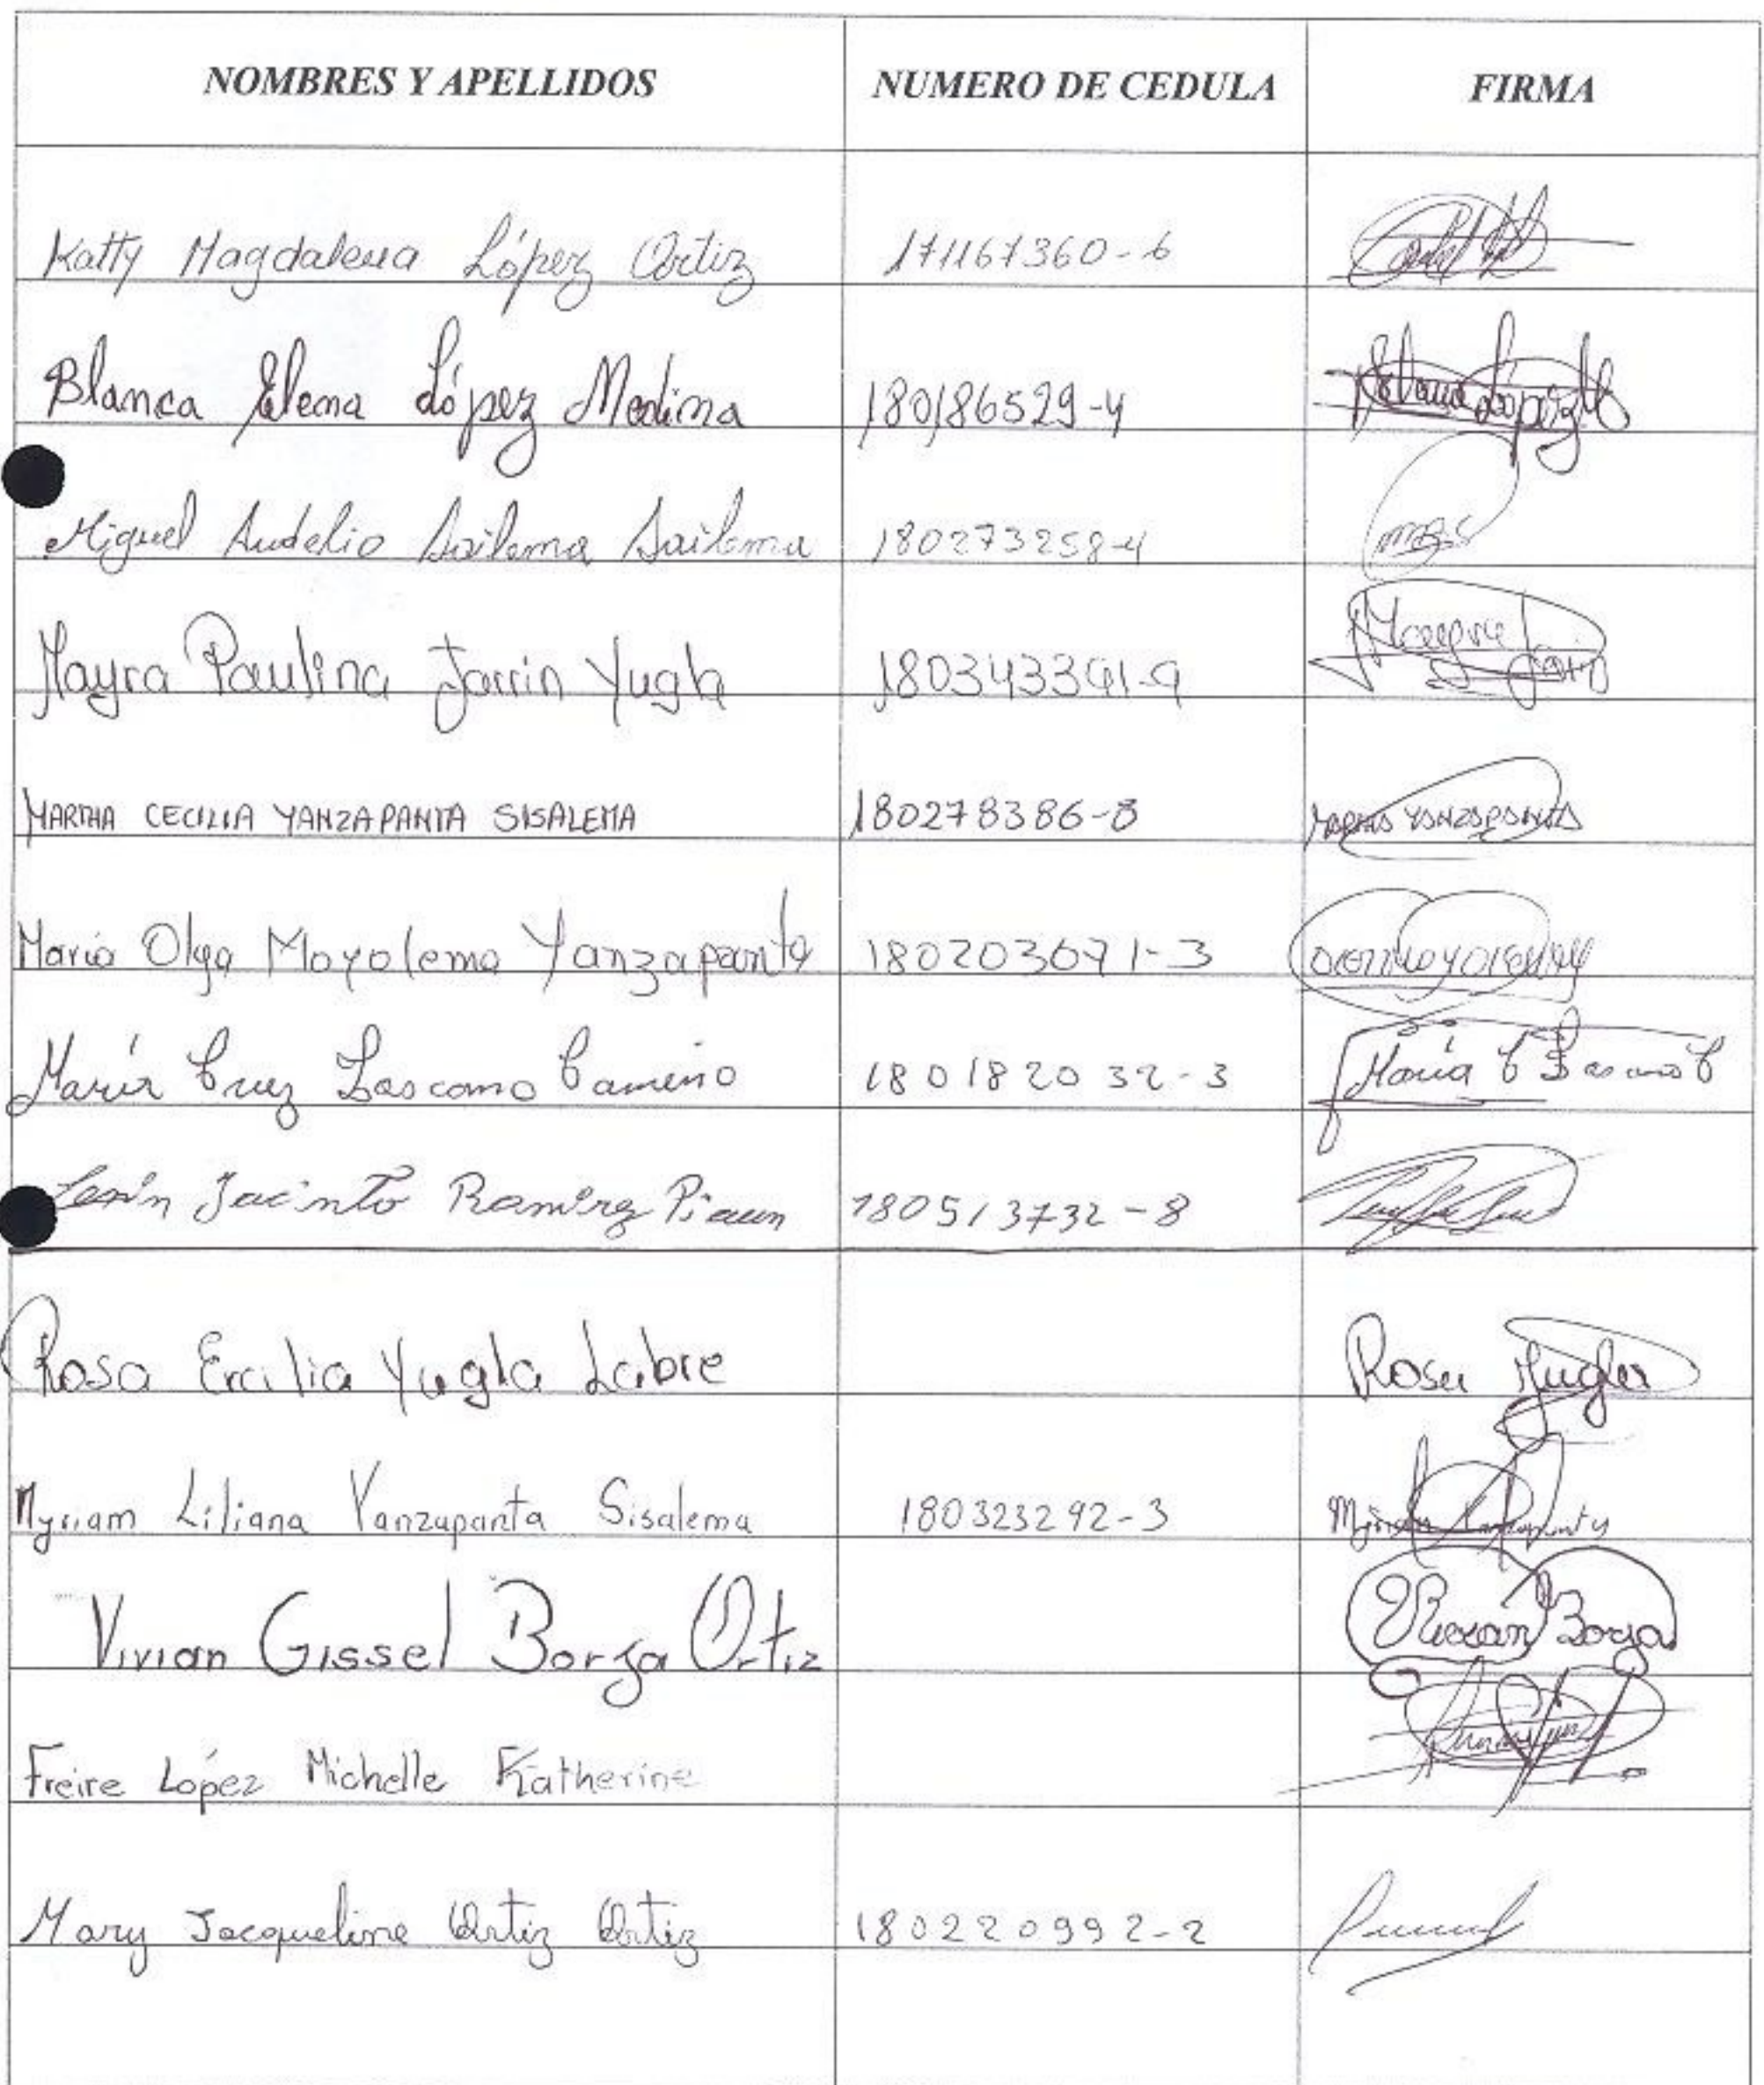 NOMBRES Y APELLIDOS NUMERO DE CEDULA FIRMA
Katty Magdalena López Ortiz 171167360-6
Blanca Elena López Medina 180186529-4
Miguel Audelio Sailema Sailema 180273258-4
Mayra Paulina Jarrin Yugla 180343391-9
MARTHA CECILIA YANZAPANTA SISALEMA 180278386-8 MARTHA YANZAPANTA
Maria Olga Moyolema Yanzapanta 180203671-3
María Cruz Lascano Camino 180182032-3 María C Lascano C
Lenin Jacinto Ramirez 180513732-8
Rosa Ercilia Yugla Labre Rosa Yugla
Myriam Liliana Yanzapanta Sisalema 180323292-3
Vivian Gissel Borja Ortiz Vivian Borja
Freire López Michelle Katherine
Mary Jacqueline Ortiz Ortiz 180220992-2